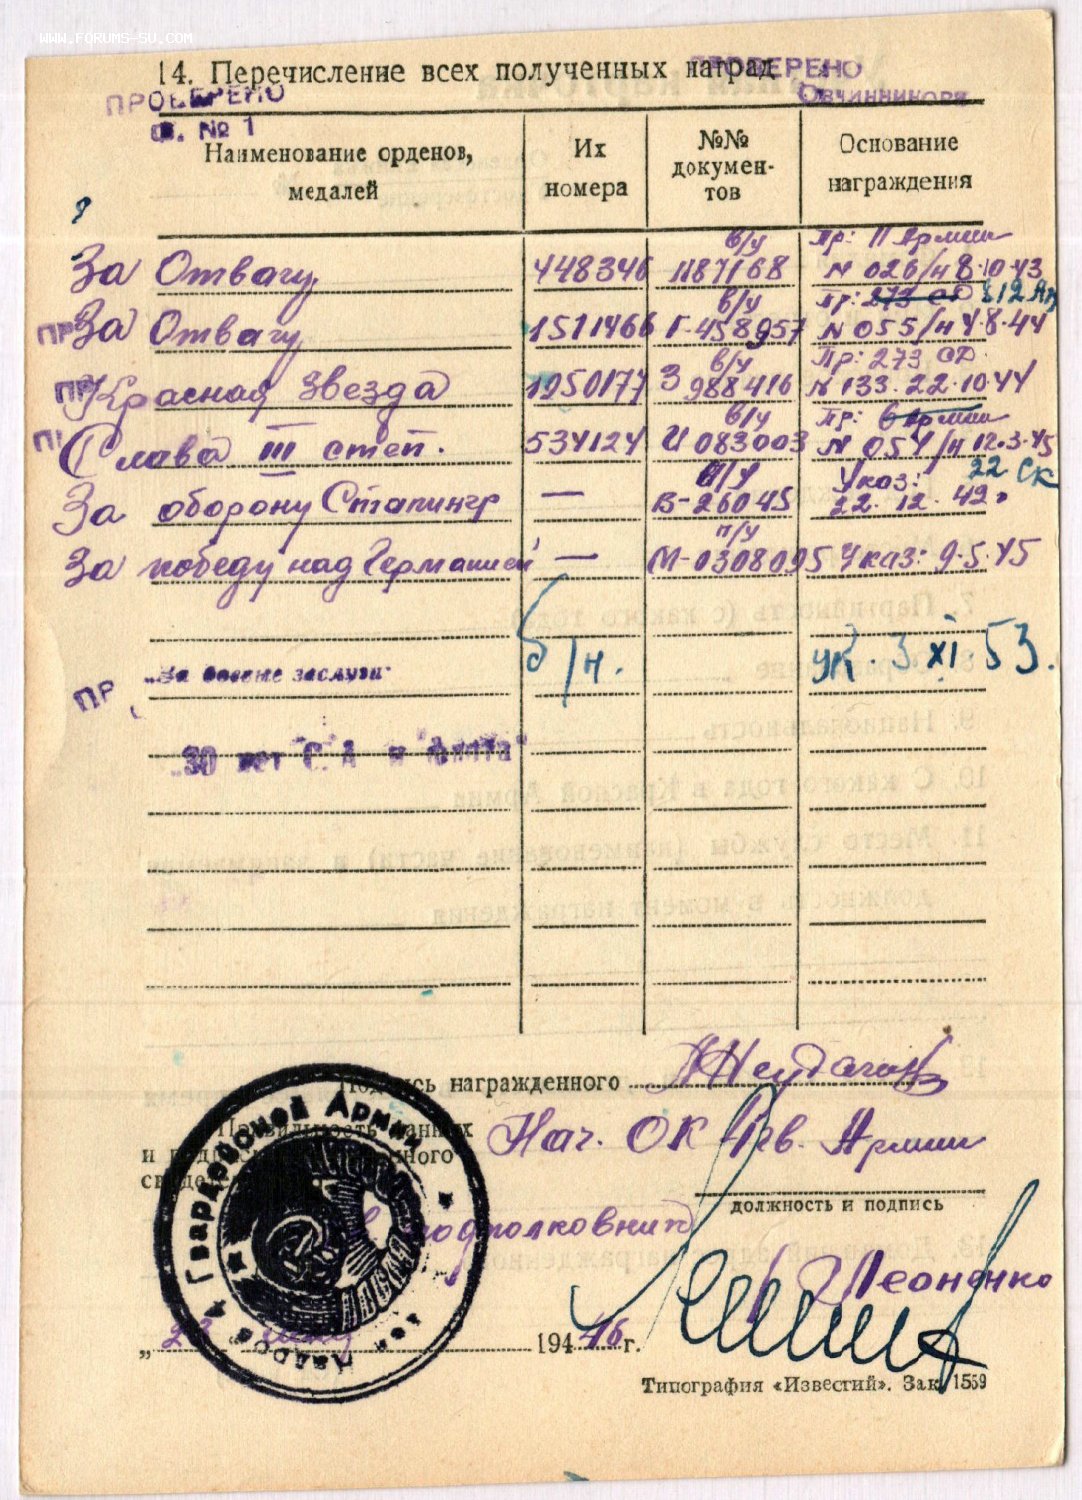 WWW.FORUMS-SU.COM
14. Перечисление всех полученных наград
ПРОВЕРЕНО
ПРОВЕРЕНО
Овчинникова
Ф. №1
Наименование орденов, медалей
Их номера
№№ документов
Основание награждения
в/у Пр: 11 Армии
За Отвагу 448346 1187168 N 026/н 8.10.43
в/у Пр: 273 СД 312 Ап
За Отвагу 1511466 Г-458957 N 055/н 4.8.44
в/у Пр: 273 СД
Красная Звезда 1250177 З 988416 N 133. 22.10.44
в/у Пр: 6 Армии
Слава III степ. 534124 И 083003 N 054/н 12.3.45
22 СК
п/у Указ:
За оборону Сталингр — В-26045 22.12.42г
п/у
За победу над Германией — М-0308095 Указ: 9.5.45
ПР „За боевые заслуги“ б/н. УК. 3 XI 53.
„30 лет С. А и Флота“
Подпись награжденного
Правильность данных
и подписи награжденного
Нач. ОК 4 Гв. Армии
должность и подпись
подполковник
Леоненко
1946 г.
Гвардейской Армии
Типография «Известий». Зак. 1559